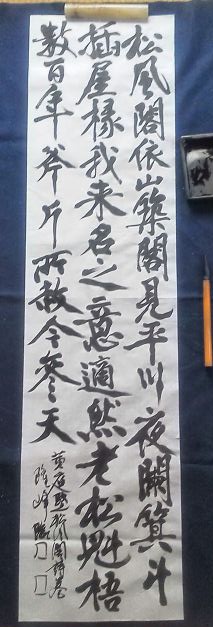 松風閣依山築閣見平川夜闌箕斗
插屋椽我来名之意適然老松魁梧
數百年斧斤所赦今參天
黄庭堅松風閣詩巻
臨